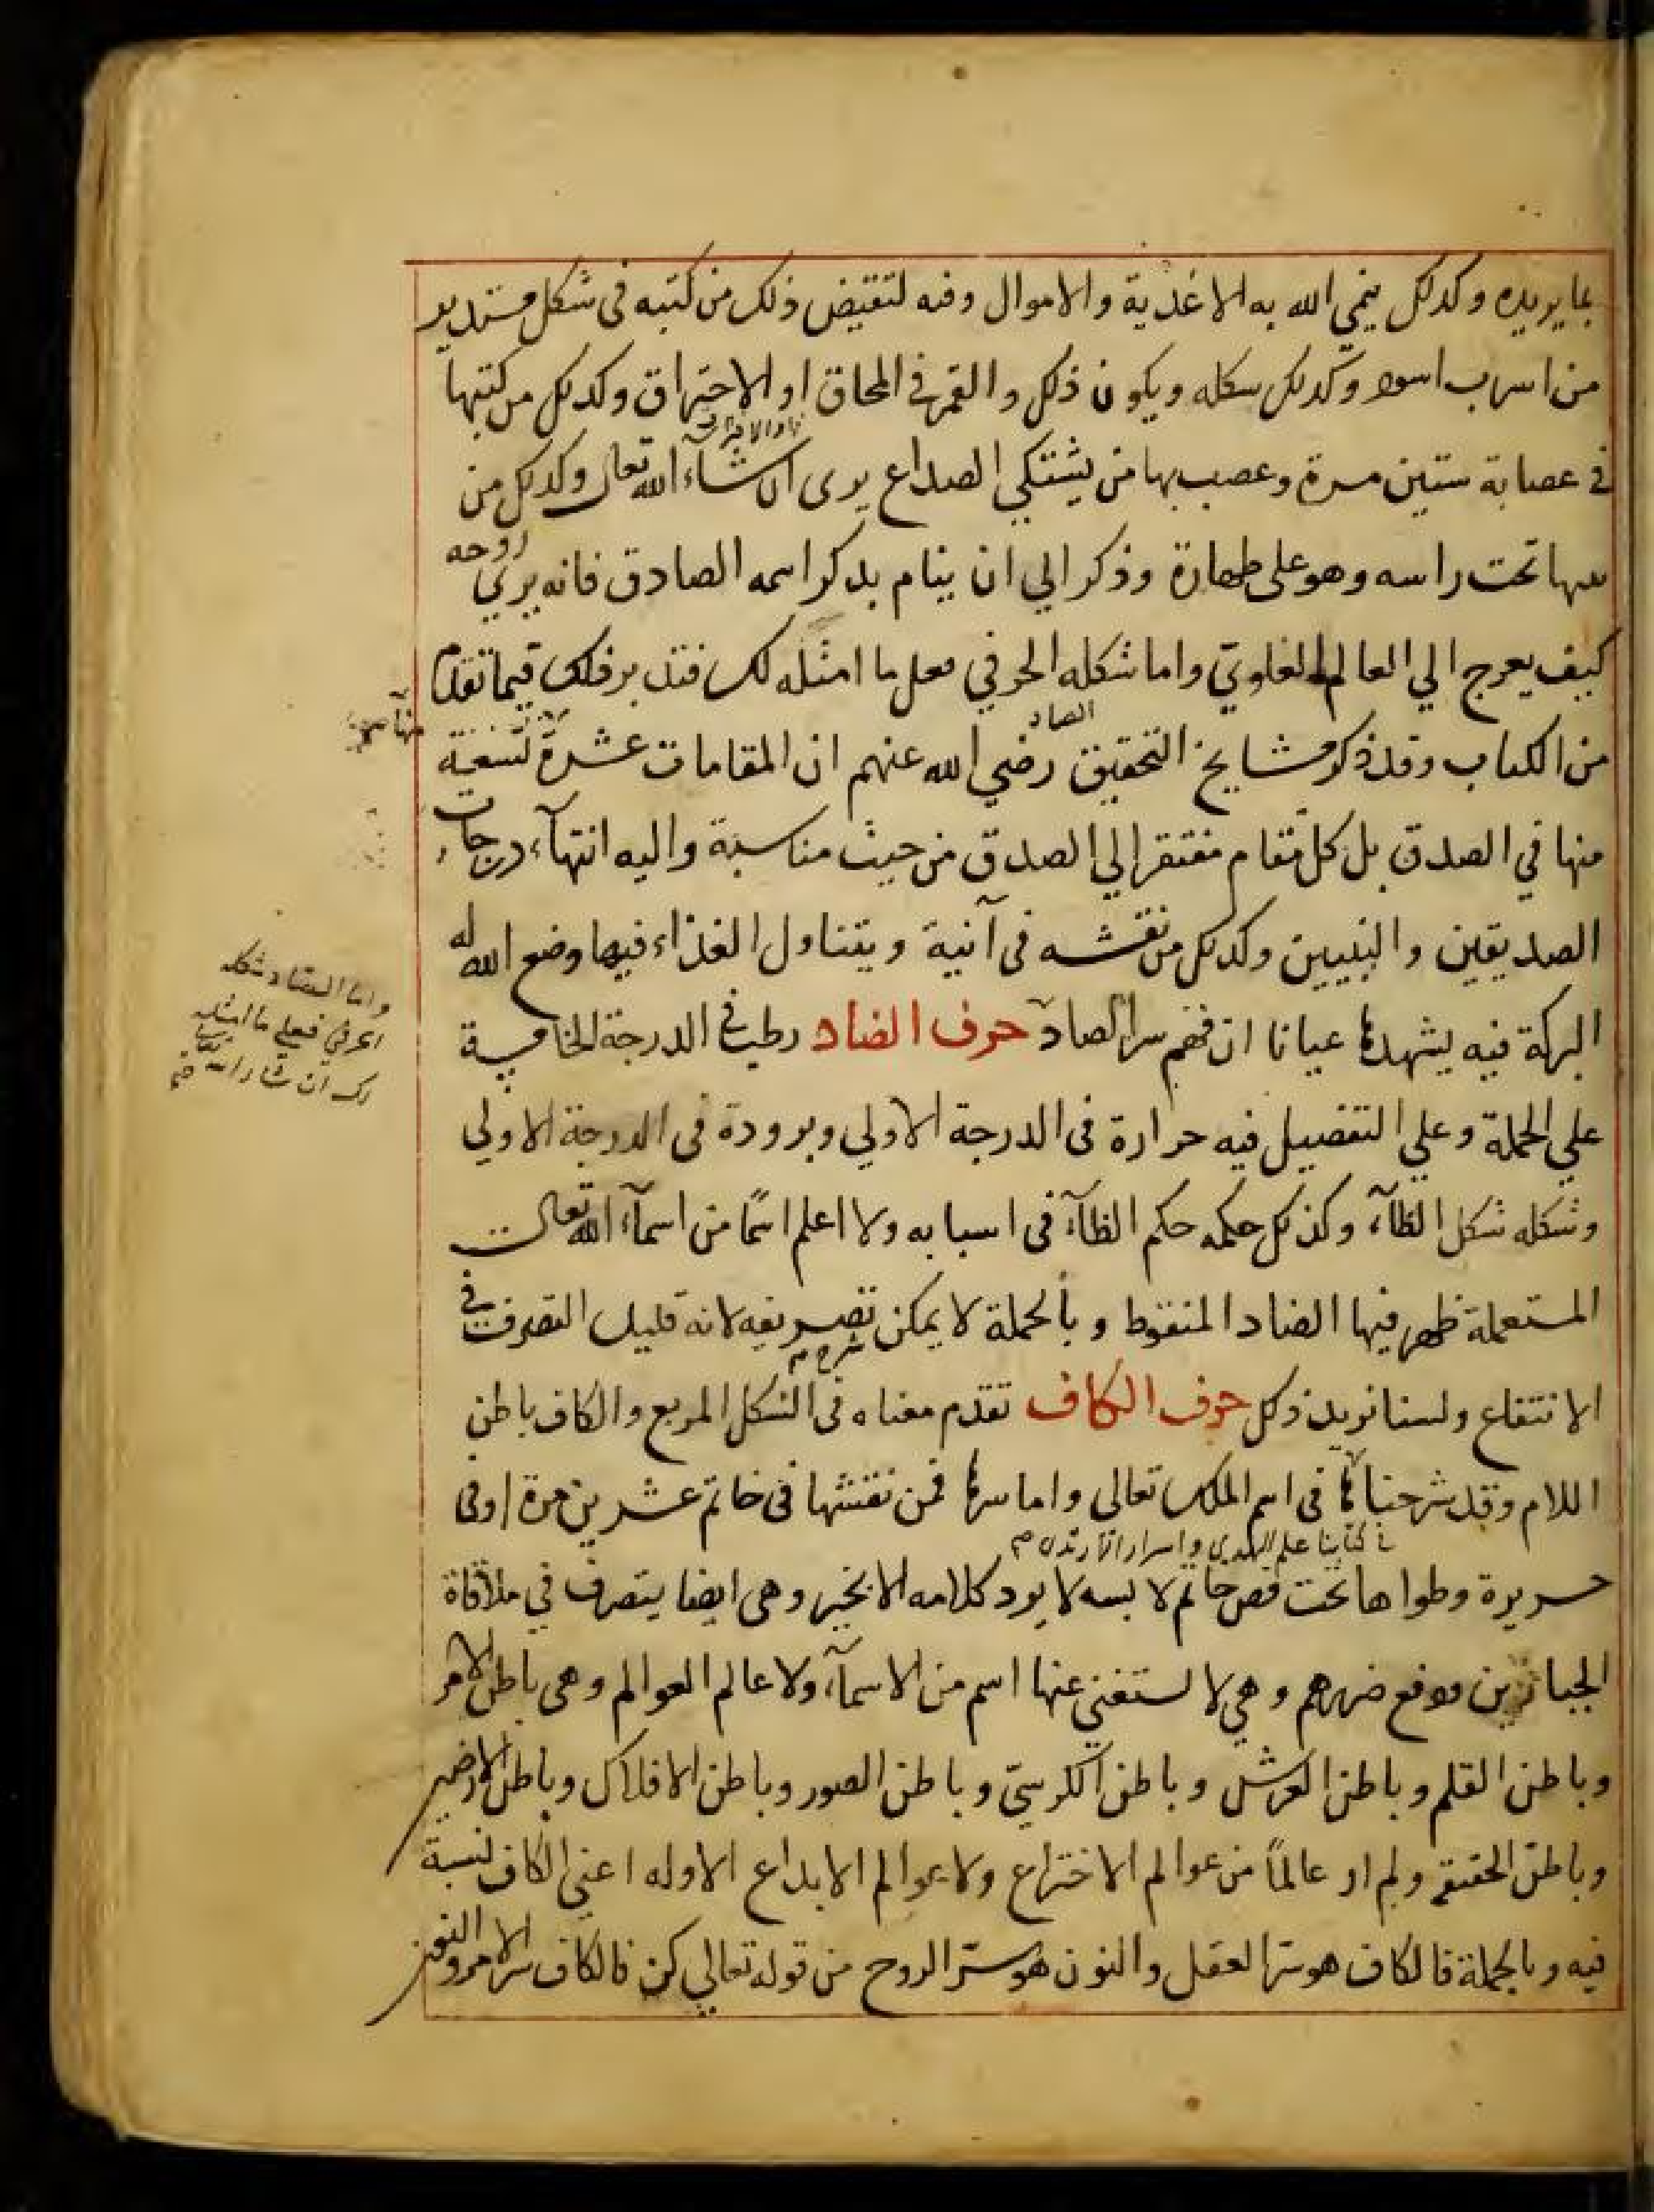 بما يريده وكذلك ينمي الله به الاغذية والاموال وفيه لنقيض ذلك من كتبه فى شكل مستدير
من اسرب اسود وكذلك شكله ويكون ذلك والقمر فى المحاق او الاحتراق وكذلك من كتبها
فى عصابة ستين مرة وعصب بها من يشتكي الصداع يرى ان شاء الله تعالى وكذلك من
تحت راسه وهو على طهارة وذكر الي ان ينام بذكر اسمه الصادق فانه يري روحه
كيف يعرج الي العالم العلوي واما شكله الحرفي فعلى ما امثله لك فتدبر ذلك فيما تقدم
من الكتاب وقد ذكر مشايخ التحقيق رضي الله عنهم ان المقامات عشرة تسعة
الصاد
منها في الصدق بل كل مقام مفتقر الي الصدق من حيث مناسبة واليه انتهآء درجات
الصديقين والنبيين وكذلك من نقشه فى آنية ويتناول الغذاء فيها وضع الله له
البركة فيه يشهدها عيانا ان فهم سر الصاد حرف الضاد رطب فى الدرجة الخامسة
علي الجملة وعلي التفصيل فيه حرارة فى الدرجة الاولي وبرودة فى الدرجة الاولي
وشكله شكل الظآء وكذلك حكمه حكم الظآء فى اسبابه ولا اعلم اسمًا من اسمآء الله تعالى
المستعملة ظهر فيها الضاد المنقوط وبالجملة لا يمكن تصريفه لانه قليل التصرف فى
الانتفاع ولسنا نريد ذلك حرف الكاف تقدم معناه فى الشكل المربع والكاف باطن
شرح م
اللام وقد شرحناها فى اسم الملك تعالى واما سرها فمن نقشها فى خاتم عشرين مرة او فى
فى كتابنا علم الهدي واسرار
حريرة وطواها تحت فص خاتم لابسه لا يرد كلامه الا بخير وهى ايضا يتصرف في ملاقاة
الجبارين ودفع ضررهم وهي لا يستغني عنها اسم من الاسمآء ولا عالم العوالم وهى باطن الامر
وباطن القلم وباطن العرش وباطن الكرسيّ وباطن الصور وباطن الافلاك وباطن الارضين
وباطن الحقيقة ولم ار عالمًا من عوالم الاختراع ولا عوالم الابداع الا وله اعني الكاف نسبة
فيه وبالجملة فالكاف هو سرّ العقل والنون هو سرّ الروح من قوله تعالي كن فالكاف سر الامر والنون
واما الضاد شكله
الحرفي فعلي ما امثله
لك ان شاء الله تعالى